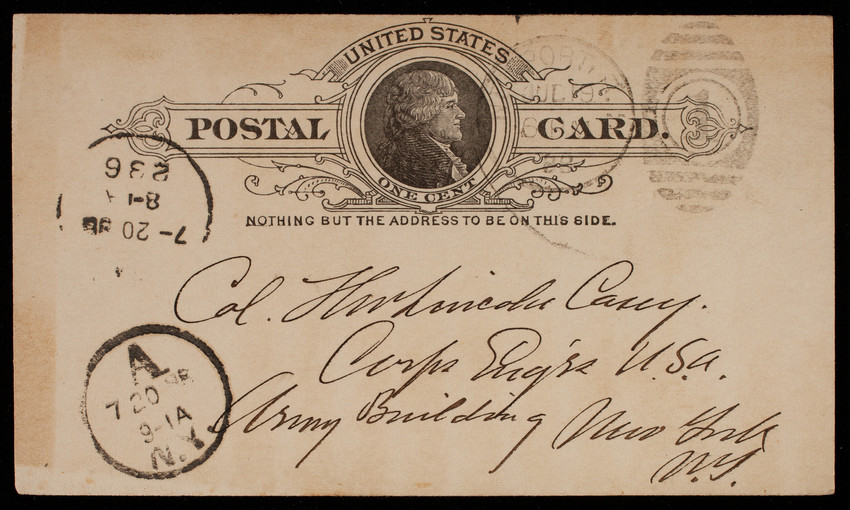 UNITED STATES
POSTAL CARD.
ONE CENT
NOTHING BUT THE ADDRESS TO BE ON THIS SIDE.
JUL 19
236
8-1 A
7-20
Col. Thos Lincoln Casey.
Corps Eng'rs U.S.A.
Army Building New York
N.Y.
A
7 20
9-1A
N.Y.